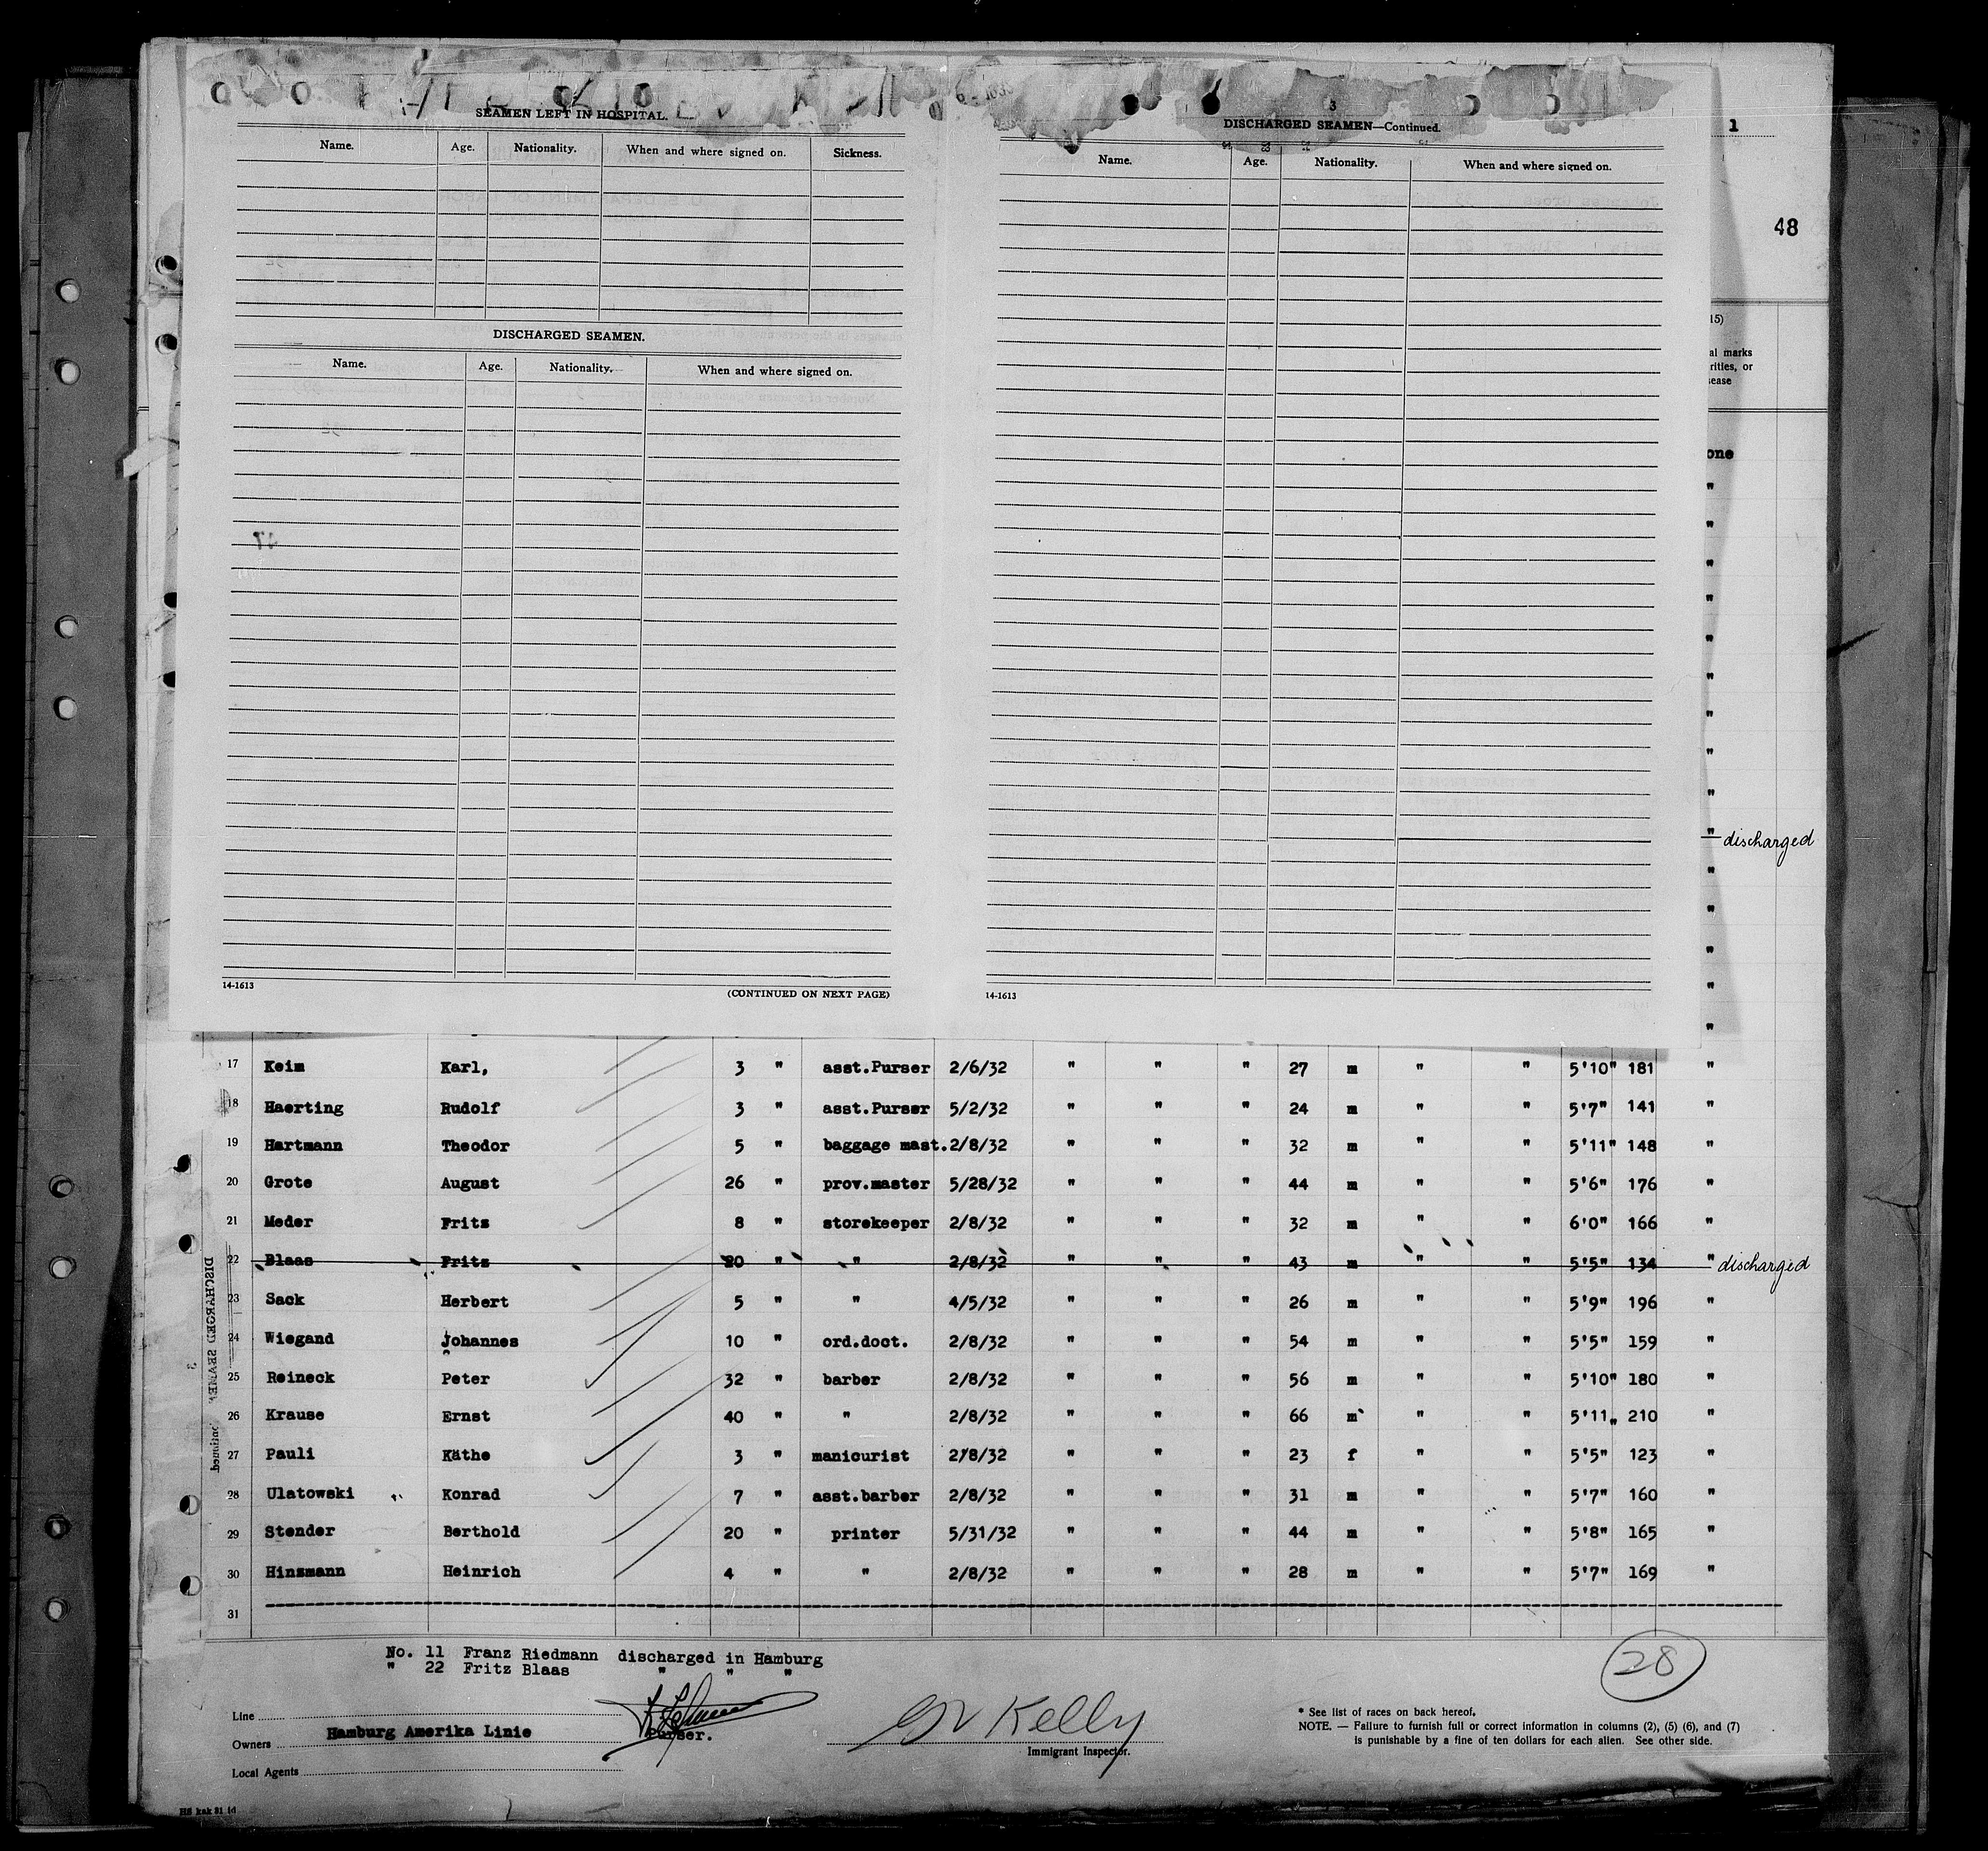 SEAMEN LEFT IN HOSPITAL.
Name. Age. Nationality. When and where signed on. Sickness.
DISCHARGED SEAMEN.
Name. Age. Nationality. When and where signed on.
14-1613 (CONTINUED ON NEXT PAGE)
3
DISCHARGED SEAMEN—Continued.
Name. Age. Nationality. When and where signed on.
14-1613
1
48
15)
al marks
rities, or
sease
one
"
"
"
"
"
"
"
"
"
" discharged
"
"
"
"
"
17 Keim Karl, 3 " asst.Purser 2/6/32 " " " 27 m " " 5'10" 181 "
18 Haerting Rudolf 3 " asst.Purser 5/2/32 " " " 24 m " " 5'7" 141 "
19 Hartmann Theodor 5 " baggage mast. 2/8/32 " " " 32 m " " 5'11" 148 "
20 Grote August 26 " prov.master 5/28/32 " " " 44 m " " 5'6" 176 "
21 Meder Fritz 8 " storekeeper 2/8/32 " " " 32 m " " 6'0" 166 "
22 Blaas Fritz 20 " " 2/8/32 " " " 43 m " " 5'5" 134 " discharged
23 Sack Herbert 5 " " 4/5/32 " " " 26 m " " 5'9" 196 "
24 Wiegand Johannes 10 " ord.doct. 2/8/32 " " " 54 m " " 5'5" 159 "
25 Reineck Peter 32 " barber 2/8/32 " " " 56 m " " 5'10" 180 "
26 Krause Ernst 40 " " 2/8/32 " " " 66 m " " 5'11" 210 "
27 Pauli Käthe 3 " manicurist 2/8/32 " " " 23 f " " 5'5" 123 "
28 Ulatowski Konrad 7 " asst.barber 2/8/32 " " " 31 m " " 5'7" 160 "
29 Stender Berthold 20 " printer 5/31/32 " " " 44 m " " 5'8" 165 "
30 Hinzmann Heinrich 4 " " 2/8/32 " " " 28 m " " 5'7" 169 "
31
No. 11 Franz Riedmann discharged in Hamburg
" 22 Fritz Blaas " " "
28
Line
Owners Hamburg Amerika Linie
Purser.
Local Agents
Kelly
Immigrant Inspector.
* See list of races on back hereof.
NOTE. — Failure to furnish full or correct information in columns (2), (5) (6), and (7)
is punishable by a fine of ten dollars for each alien. See other side.